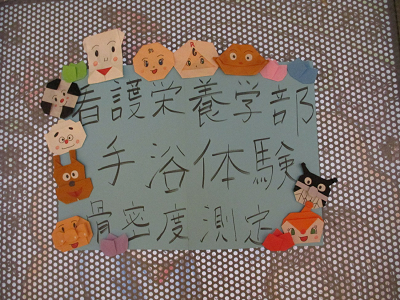 看護栄養学部
手浴体験
骨密度測定